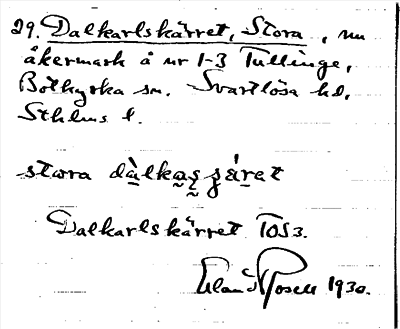 29. Dalkarlskärret, Stora, nu
åkermark å nr 1-3 Tullinge,
Botkyrka sn. Svartlösa hd,
Sthlms l.
stora
Dalkarlskärret TOS3.
Erland Rosell 1930.